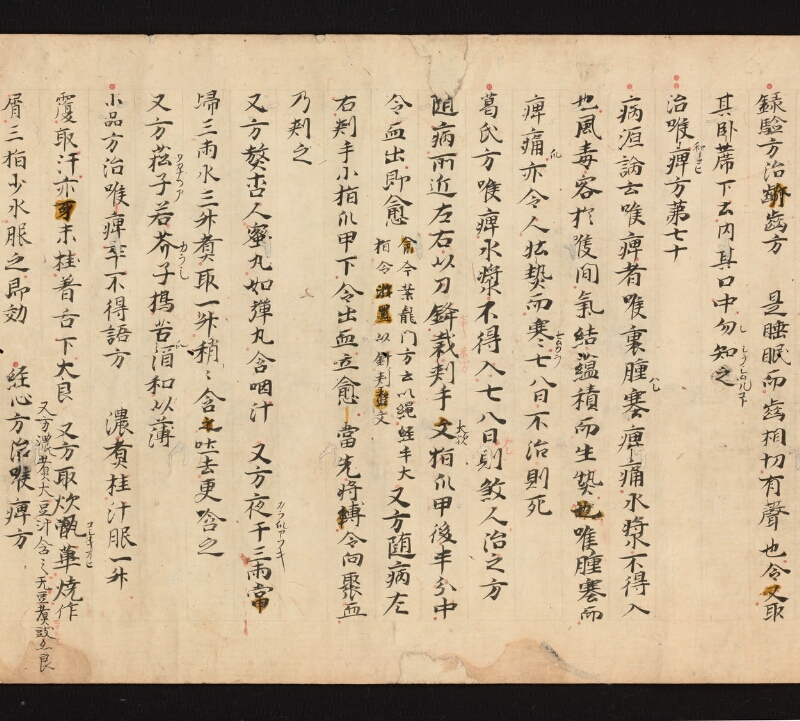 録驗方治齘齒方 是睡眠而齒相切有聲也令又取
其卧蓆下土内其口中勿知之
治喉痺方第七十
病源論云喉痺者喉裏腫塞痺痛水漿不得入
也風毒客於喉間氣結蘊積而生熱也喉腫塞而
痺痛亦令人壮熱而寒七八日不治則死
葛氏方喉痺水漿不得入七八日則煞人治之方
随病所近左右以刀鋒裁刾手大指爪甲後半分中
令血出即愈 今葉龍門方云以繩經手大指令 以針刾 文 又方随病左
右刾手小指爪甲下令出血立愈 當先将縛令向聚血
乃刾之
又方熬杏人蜜丸如彈丸含咽汁 又方夜干三兩當
歸三兩水三升煮取一升稍〻含之吐去更含之
又方菘子若芥子擣苦酒和以薄
小品方治喉痺卒不得語方 濃煮桂汁服一升
覆取汗亦可末桂着舌下大良 又方取炊甑簞燒作
又方濃煮大豆汁含之无豆煮豉亦良
屑三指少水服之即効 經心方治喉痺方